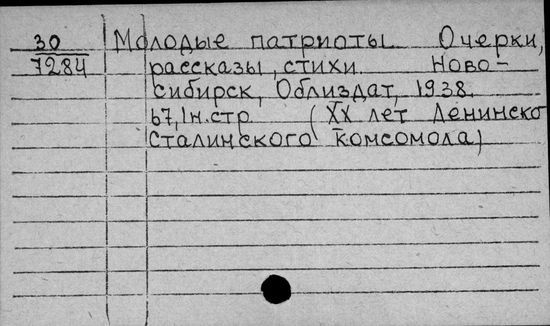 30 Молодые патриоты. Очерки,
7284 рассказы, стихи. Ново-
сибирск, Облиздат, 1938.
67, 1н.стр (XX лет Ленинско
Сталинского комсомола)